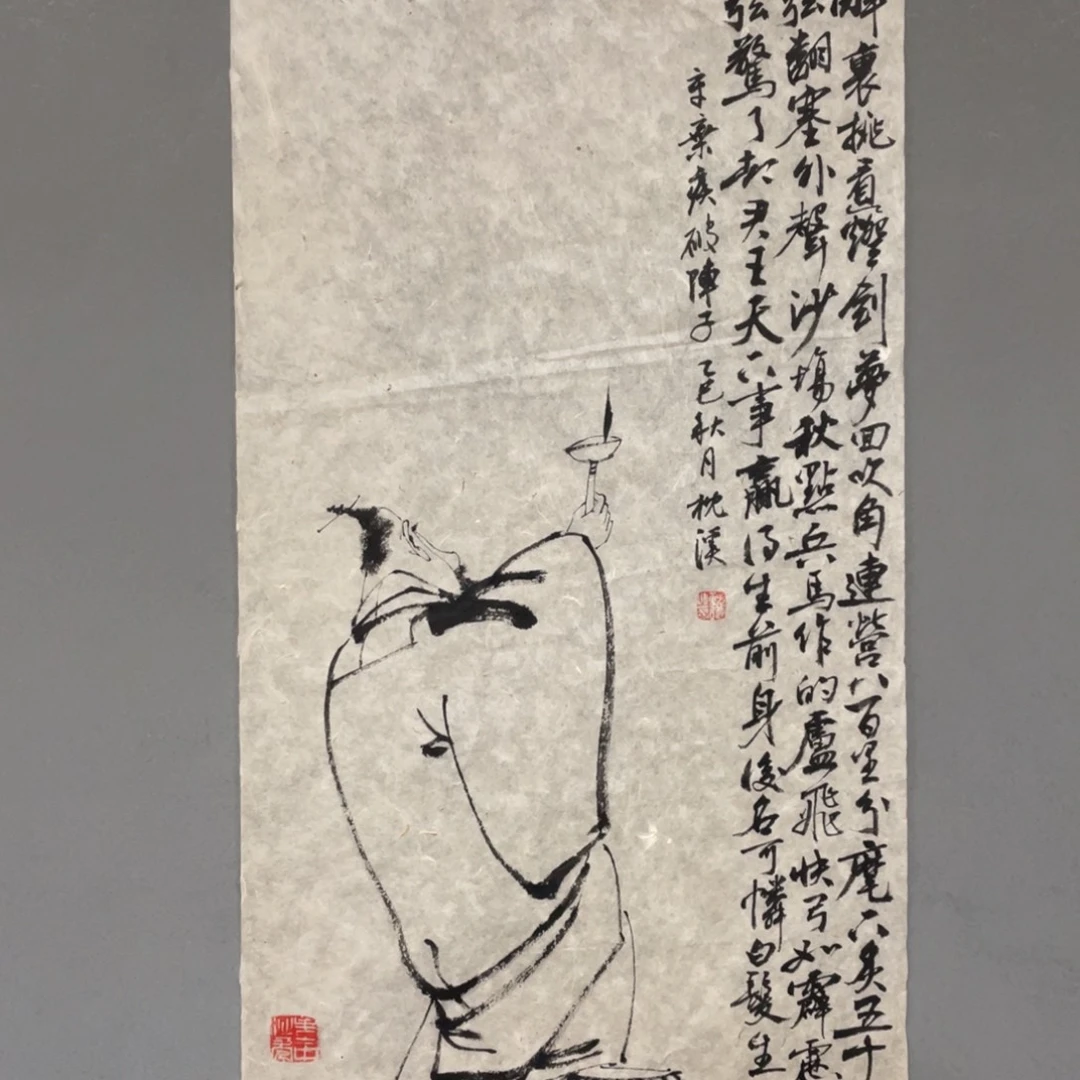 醉裏挑看燈劍夢回吹角連營八百里分麾下炙五十
弦翻塞外聲沙場秋點兵馬作的盧飛快弓如霹靂
弦驚了却君王天下事贏得生前身後名可憐白髮生
辛棄疾破陣子 乙巳秋月 枕溪